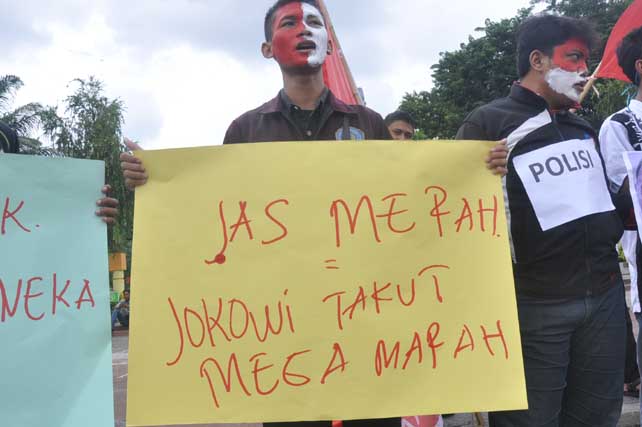 K.
NEKA
JAS MERAH.
=
JOKOWI TAKUT
MEGA MARAH
POLISI